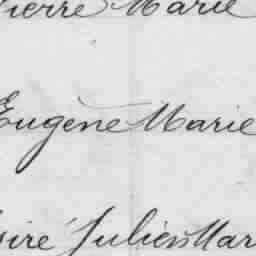 Pierre Marie
Eugène Marie
Julien Mar